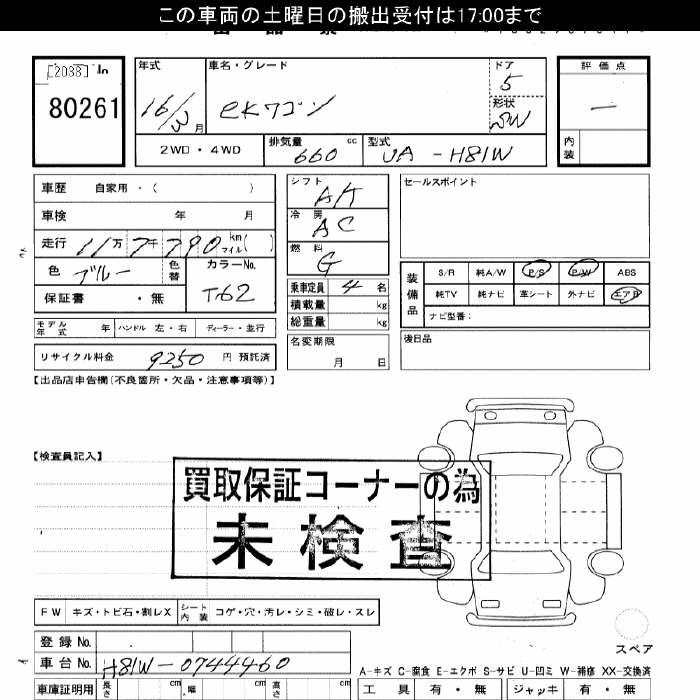 この車両の土曜日の搬出受付は17:00まで
[2038]
80261
年式
16/3月
車名・グレード
eKワゴン
ドア
5
形状
SW
評価点
—
内装
2WD・4WD
排気量 660 cc
型式 UA-H81W
車歴 自家用・( )
車検 年 月
走行 11万7千790 km マイル( )
色 ブルー 色替
カラーNo. T62
保証書 ・無
シフト AT
冷房 AC
燃料 G
乗車定員 4 名
積載量 kg
総重量 kg
セールスポイント
装備品
S/R 純A/W P/S P/W ABS
純TV 純ナビ 革シート 外ナビ エアB
ナビ型番:
モデル年式 年 ハンドル 左・右 ディーラー・並行
名変期限
月 日
後日品
リサイクル料金 9250 円 預託済
【出品店申告欄(不良箇所・欠品・注意事項等)】
【検査員記入】
買取保証コーナーの為
未検査
FW キズ・トビ石・割レX シート内装 コゲ・穴・汚レ・シミ・破レ・スレ
スペア
登録No.
車台No. H81W-0744460
A-キズ C-腐食 E-エクボ S-サビ U-凹ミ W-補修 XX-交換済
車庫証明用 長さ cm 幅 cm 高さ cm
工具 有・無 ジャッキ 有・無